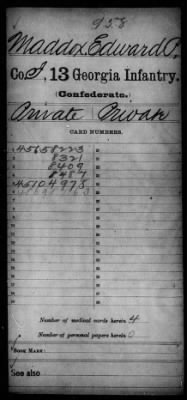 958
Maddox, Edward P.
Co. I, 13 Georgia Infantry.
(Confederate.)
Private Private
CARD NUMBERS.
45658223
8321
8409
8487
45104975
Number of medical cards herein 4
Number of personal papers herein 0
BOOK MARK:
See also